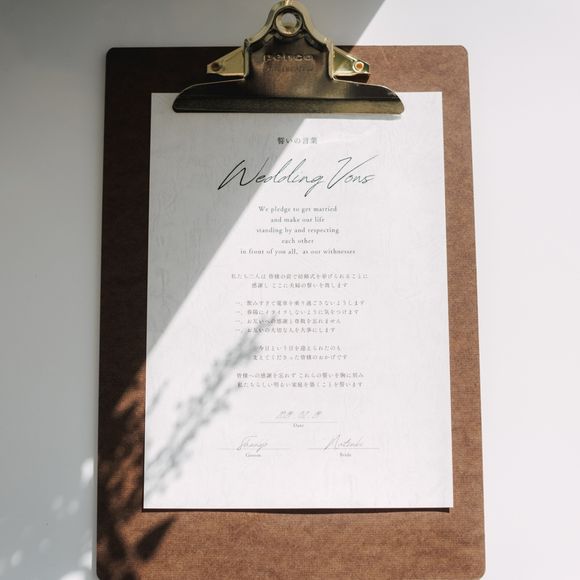 penco
誓いの言葉
Wedding Vons
We pledge to get married
and make our life
standing by and respecting
each other
in front of you all, as our withnesses
私たち二人は 皆様の前で結婚式を挙げられることに
感謝し ここに夫婦の誓いを致します
一、飲みすぎて電車を乗り過ごさないようします
一、春陽にイライラしないように気をつけます
一、お互いへの感謝と尊敬を忘れません
一、お互いの大切な人を大事にします
今日という日を迎えられたのも
支えてくださった皆様のおかげです
皆様への感謝を忘れず これらの誓いを胸に刻み
私たちらしい明るい家庭を築くことを誓います
Date
Groom
Bride